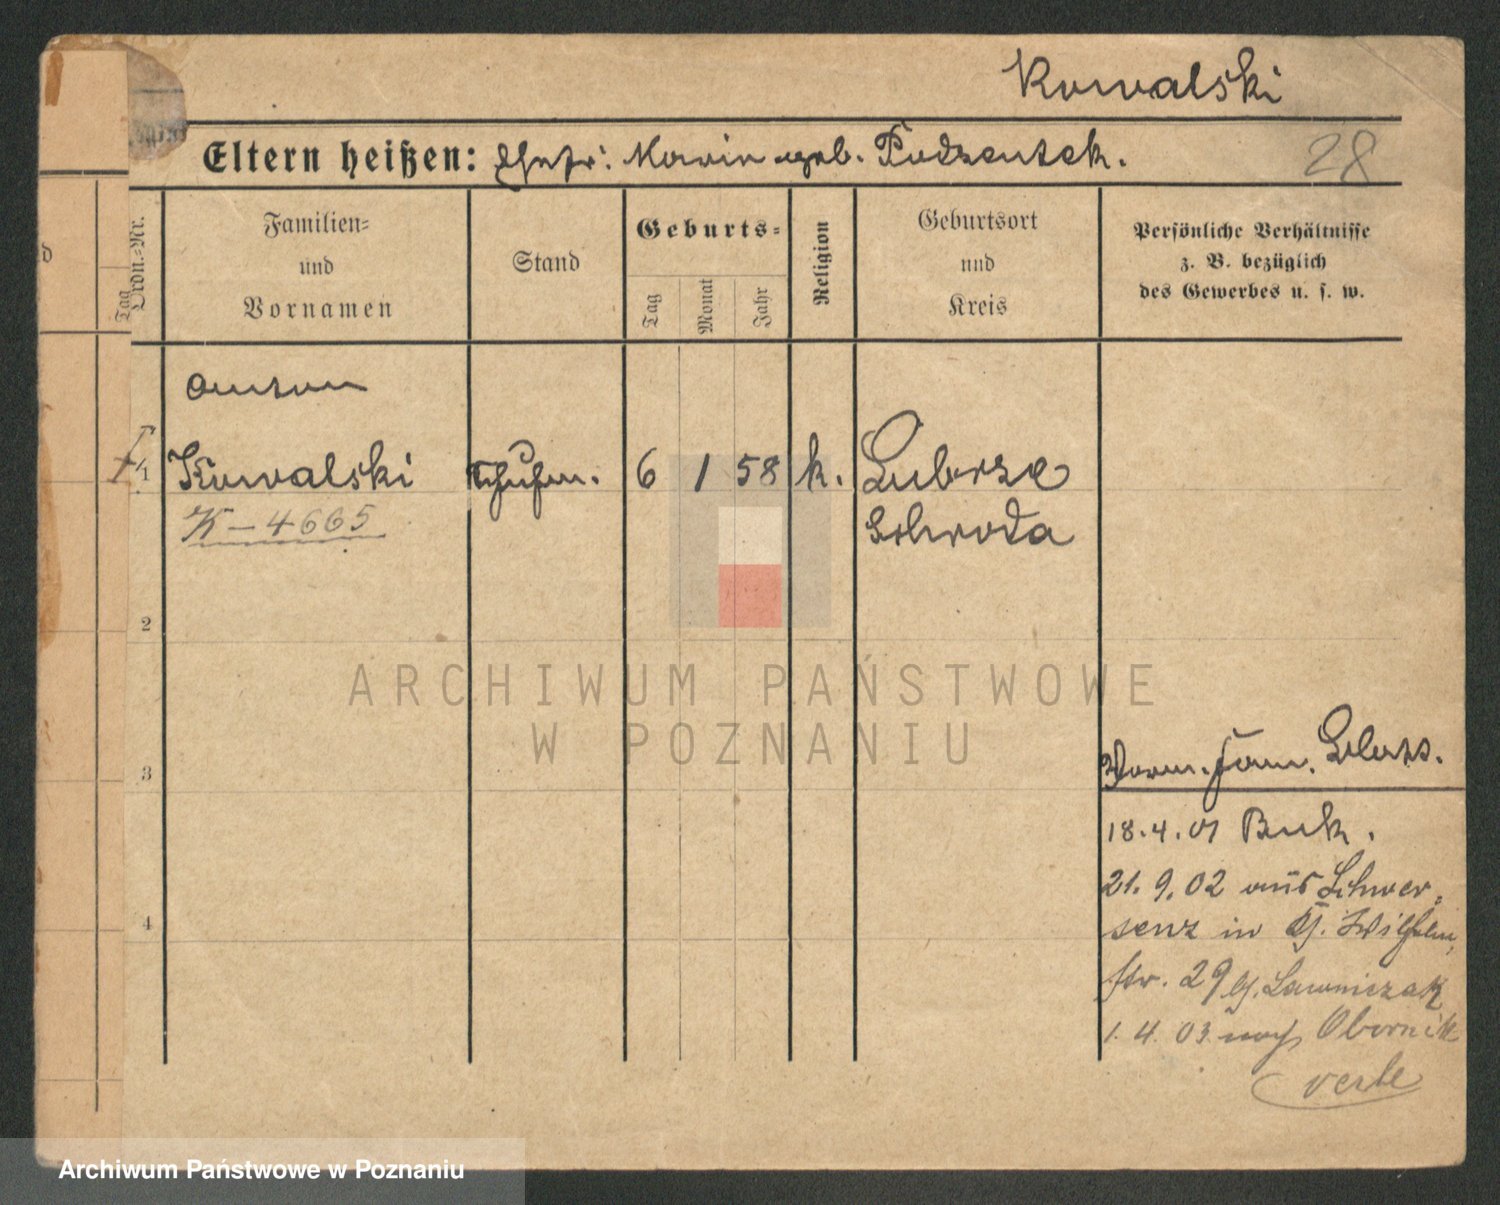 Kowalski
Eltern heißen: Marie geb. Podzentek.
28
Ordn.-Nr.
Tag
d
Familien-
und
Vornamen
Stand
Geburts-
Tag
Monat
Jahr
Religion
Geburtsort
und
Kreis
Persönliche Verhältnisse
z. B. bezüglich
des Gewerbes u. s. w.
Anton
1
Kowalski
6 1 58 k.
K-4665
Schroda
2
ARCHIWUM PAŃSTWOWE
W POZNANIU
3
4
18.4.01 Buk.
21.9.02 aus Schwer-
senz in Wilhelm
str. 29 b/. Lawniczak
1.4.03. nach Obornik
Archiwum Państwowe w Poznaniu